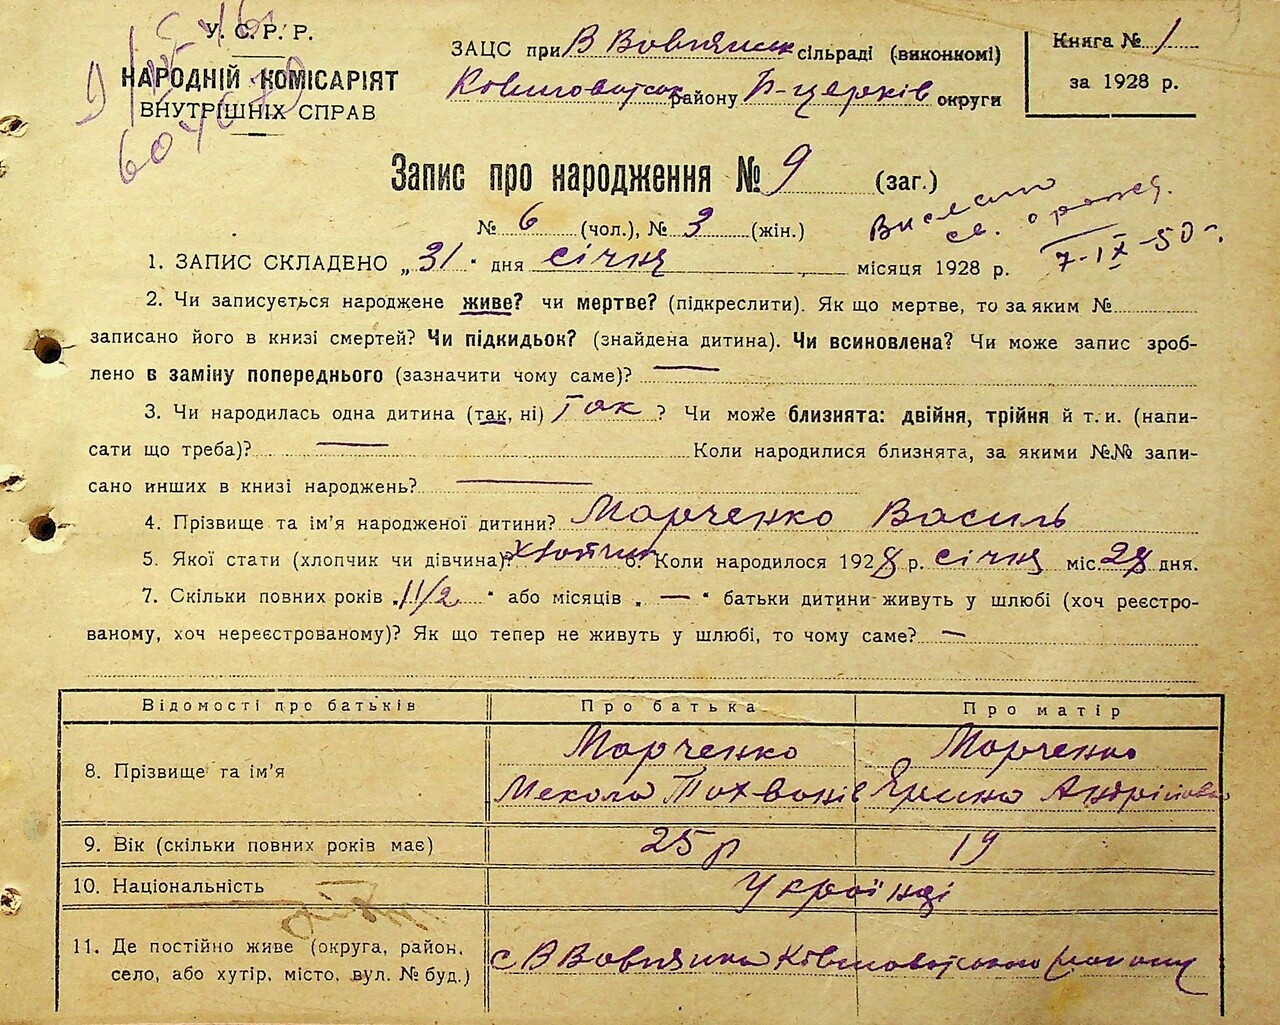 У. С. Р. Р.
НАРОДНІЙ КОМІСАРІЯТ
ВНУТРІШНІХ СПРАВ
ЗАЦС при В Вовнянск сільраді (виконкомі)
району Б-церків округи
Книга № 1
за 1928 р.
Запис про народження № 9 (заг.)
№ 6 (чол.), № 3 (жін.)
7-IX-50
1. ЗАПИС СКЛАДЕНО „31" дня січня місяця 1928 р.
2. Чи записується народжене живе? чи мертве? (підкреслити). Як що мертве, то за яким №
записано його в книзі смертей? Чи підкидьок? (знайдена дитина). Чи всиновлена? Чи може запис зроб-
лено в заміну попереднього (зазначити чому саме)? —
3. Чи народилась одна дитина (так, ні) Так ? Чи може близнята: двійня, трійня й т. и. (напи-
сати що треба)? — Коли народилися близнята, за якими №№ запи-
сано инших в книзі народжень? —
4. Прізвище та ім'я народженої дитини? Марченко Василь
5. Якої стати (хлопчик чи дівчина)? хлопчик 6. Коли народилося 1928 р. січня міс. 28 дня.
7. Скільки повних років „1 1/2" або місяців „—" батьки дитини живуть у шлюбі (хоч реєстро-
ваному, хоч нереєстрованому)? Як що тепер не живуть у шлюбі, то чому саме? —
Відомості про батьків Про батька Про матір
8. Прізвище та ім'я Марченко Марченко
Микола Ярина Андріївна
9. Вік (скільки повних років має) 25 р 19
10. Національність Українці
11. Де постійно живе (округа, район, с В Вовнянка
село, або хутір, місто, вул. № буд.)